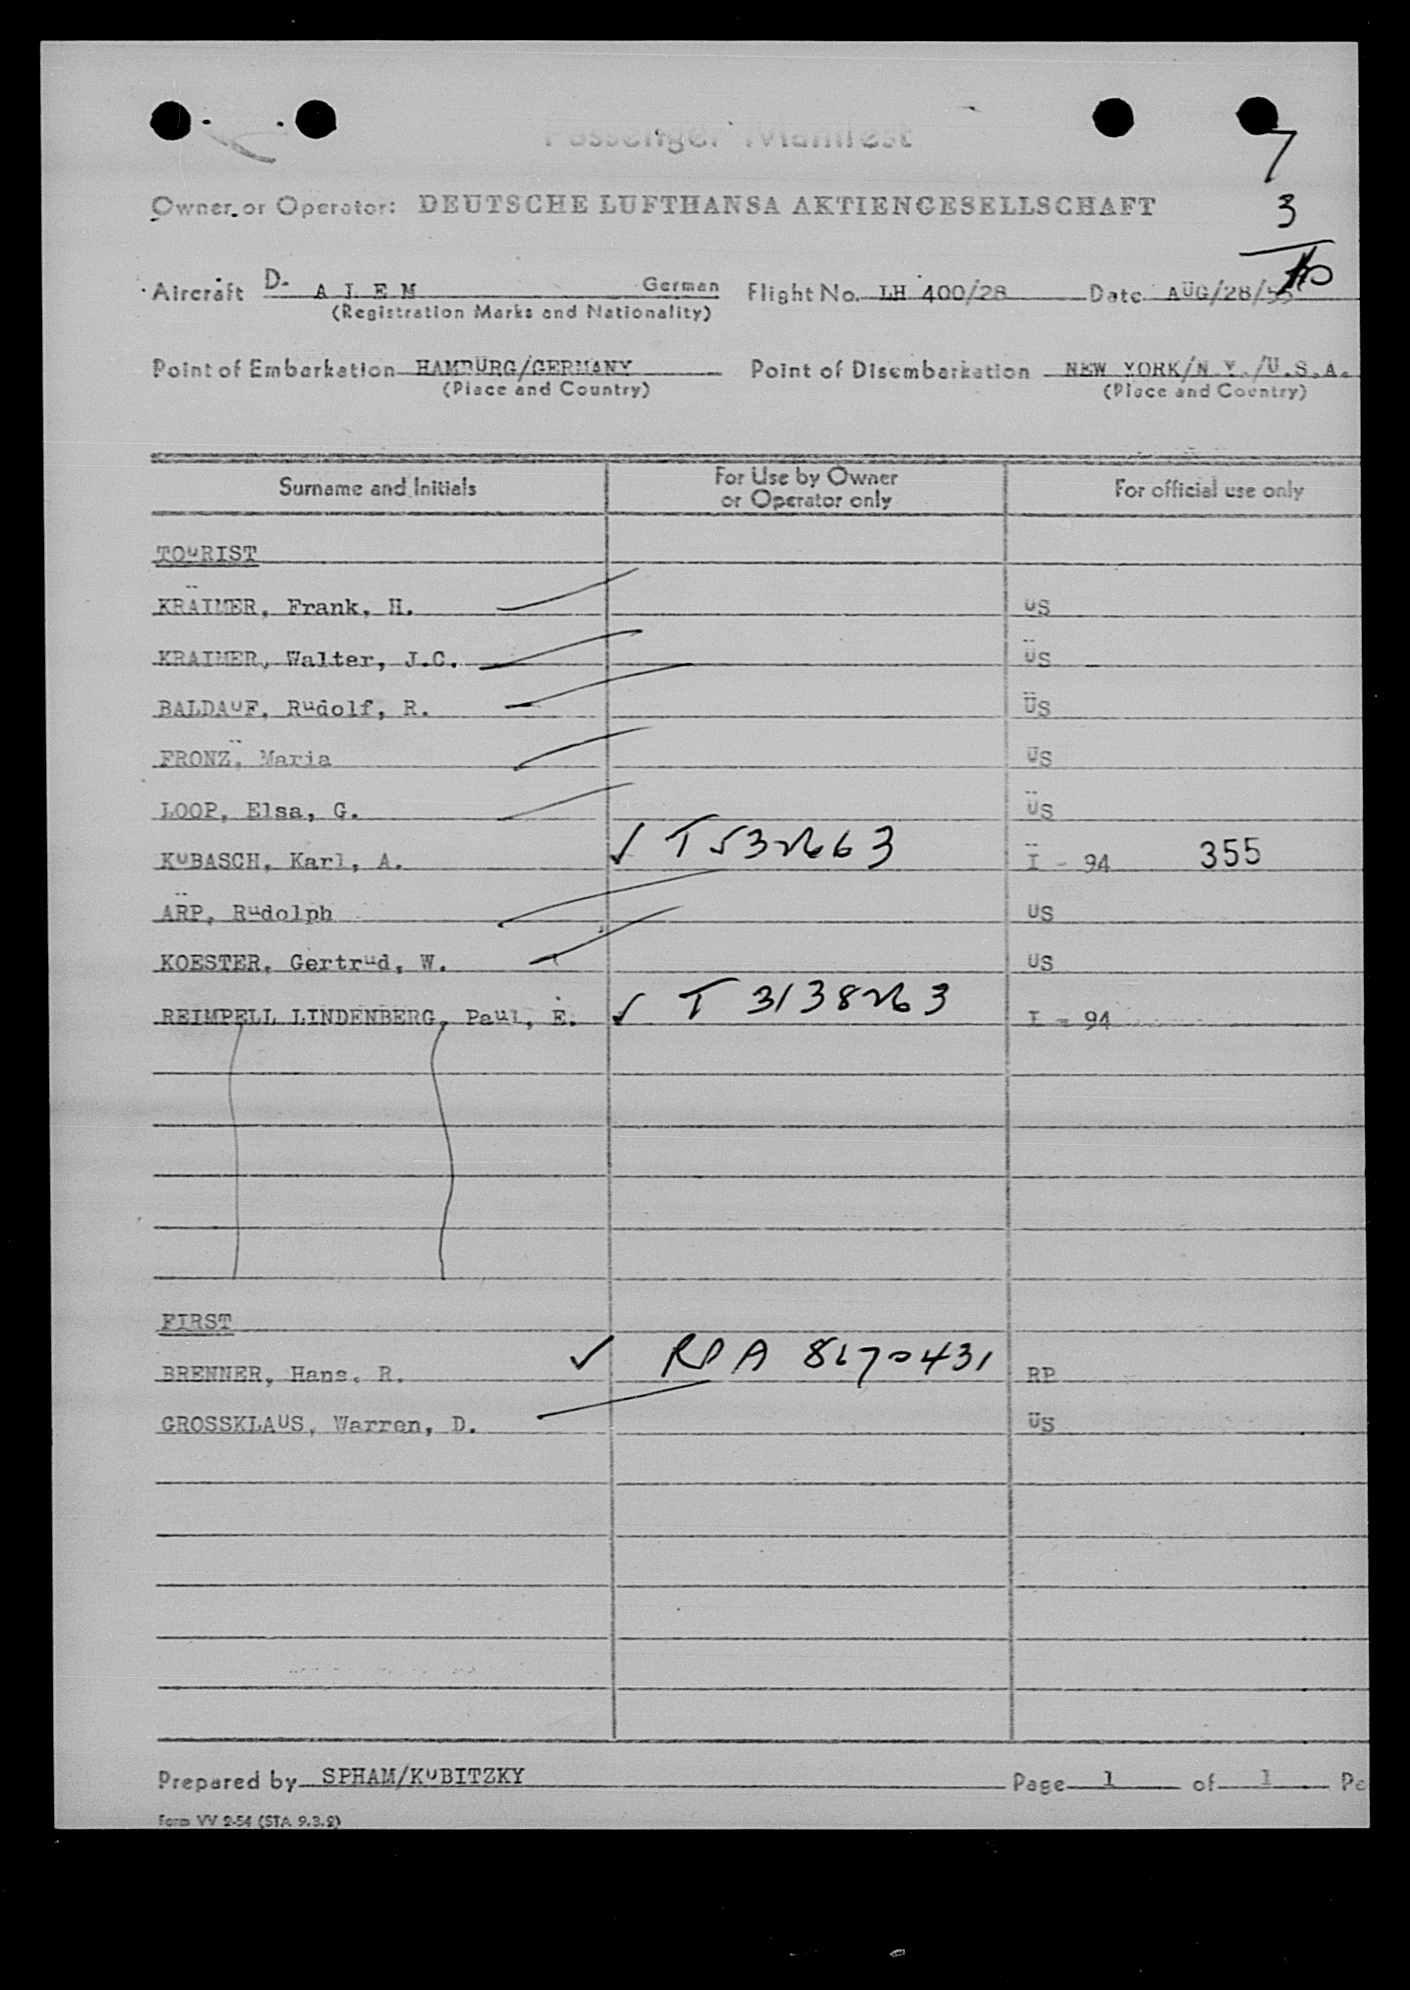 Passenger Manifest
7
Owner or Operator: DEUTSCHE LUFTHANSA AKTIENGESELLSCHAFT
3
10
Aircraft D- A L E M German Flight No. LH 400/28 Date AUG/28/55
(Registration Marks and Nationality)
Point of Embarkation HAMBURG/GERMANY Point of Disembarkation NEW YORK/N Y./U.S.A.
(Place and Country) (Place and Country)
Surname and Initials For Use by Owner or Operator only For official use only
TOURIST
KRAIMER, Frank, H. US
KRAIMER, Walter, J.C. US
BALDAUF, Rudolf, R. US
FRONZ, Maria US
LOOP, Elsa, G. US
KUBASCH, Karl, A. ✓ T 532663 I - 94 355
ARP, Rudolph US
KOESTER, Gertrud, W. US
REIMPELL LINDENBERG, Paul, E. ✓ T 3138263 I - 94
FIRST
BRENNER, Hans, R. ✓ RPA 8670431 RP
GROSSKLAUS, Warren, D. US
Prepared by SPHAM/KUBITZKY Page 1 of 1
Form VV 2-54 (STA 9.3.2)